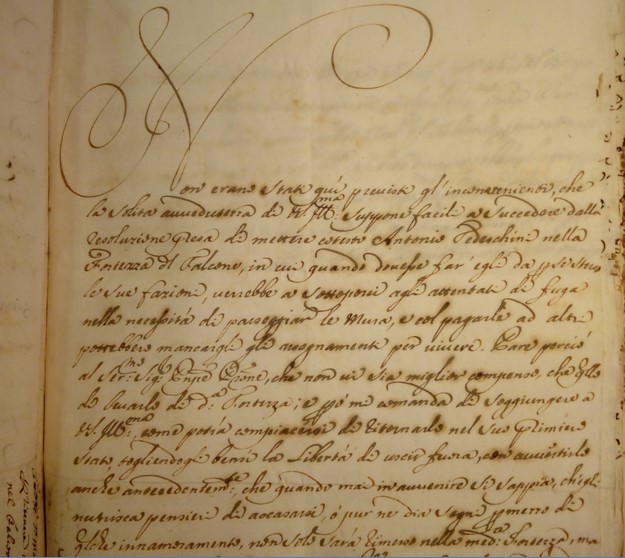 Non erano State quì previste gl'inconvenienti, che
la Solita avvedutezza di V.S. Ill:ma Suppone facili a Succedere dalla
resoluzione presa di mettere cotesto Antonio Tedeschini nella
Fortezza del Falcone, in cui quando dovesse far' egli da se stesso
le Sue fazioni, verrebbe a Sottoporsi agli attentati di fuga
nella necessità di passeggiar le Mura, e col pagarle ad altri
potrebbero mancargli gli assegnamenti per vivere. Pare perciò
al Ser:mo Sig:, che non vi Sia miglior compenso, che quello
di levarlo di d:a Fortezza; e però mi comanda di Soggiungere a
V.S. Ill:ma, come potrà compiacersi di ritornarlo nel Suo primiero
Stato, togliendogli bensì la Libertà di uscir fuora, con avvertirlo
anche antecedentem:te, che quando mai in avvenire Si Sappia, ch'egli
nutrisca pensieri di accasarsi, ò pur ne dia Segni per mezzo di
qualche innamoramento, non Solo Sarà rimesso nella med:a Fortezza, ma